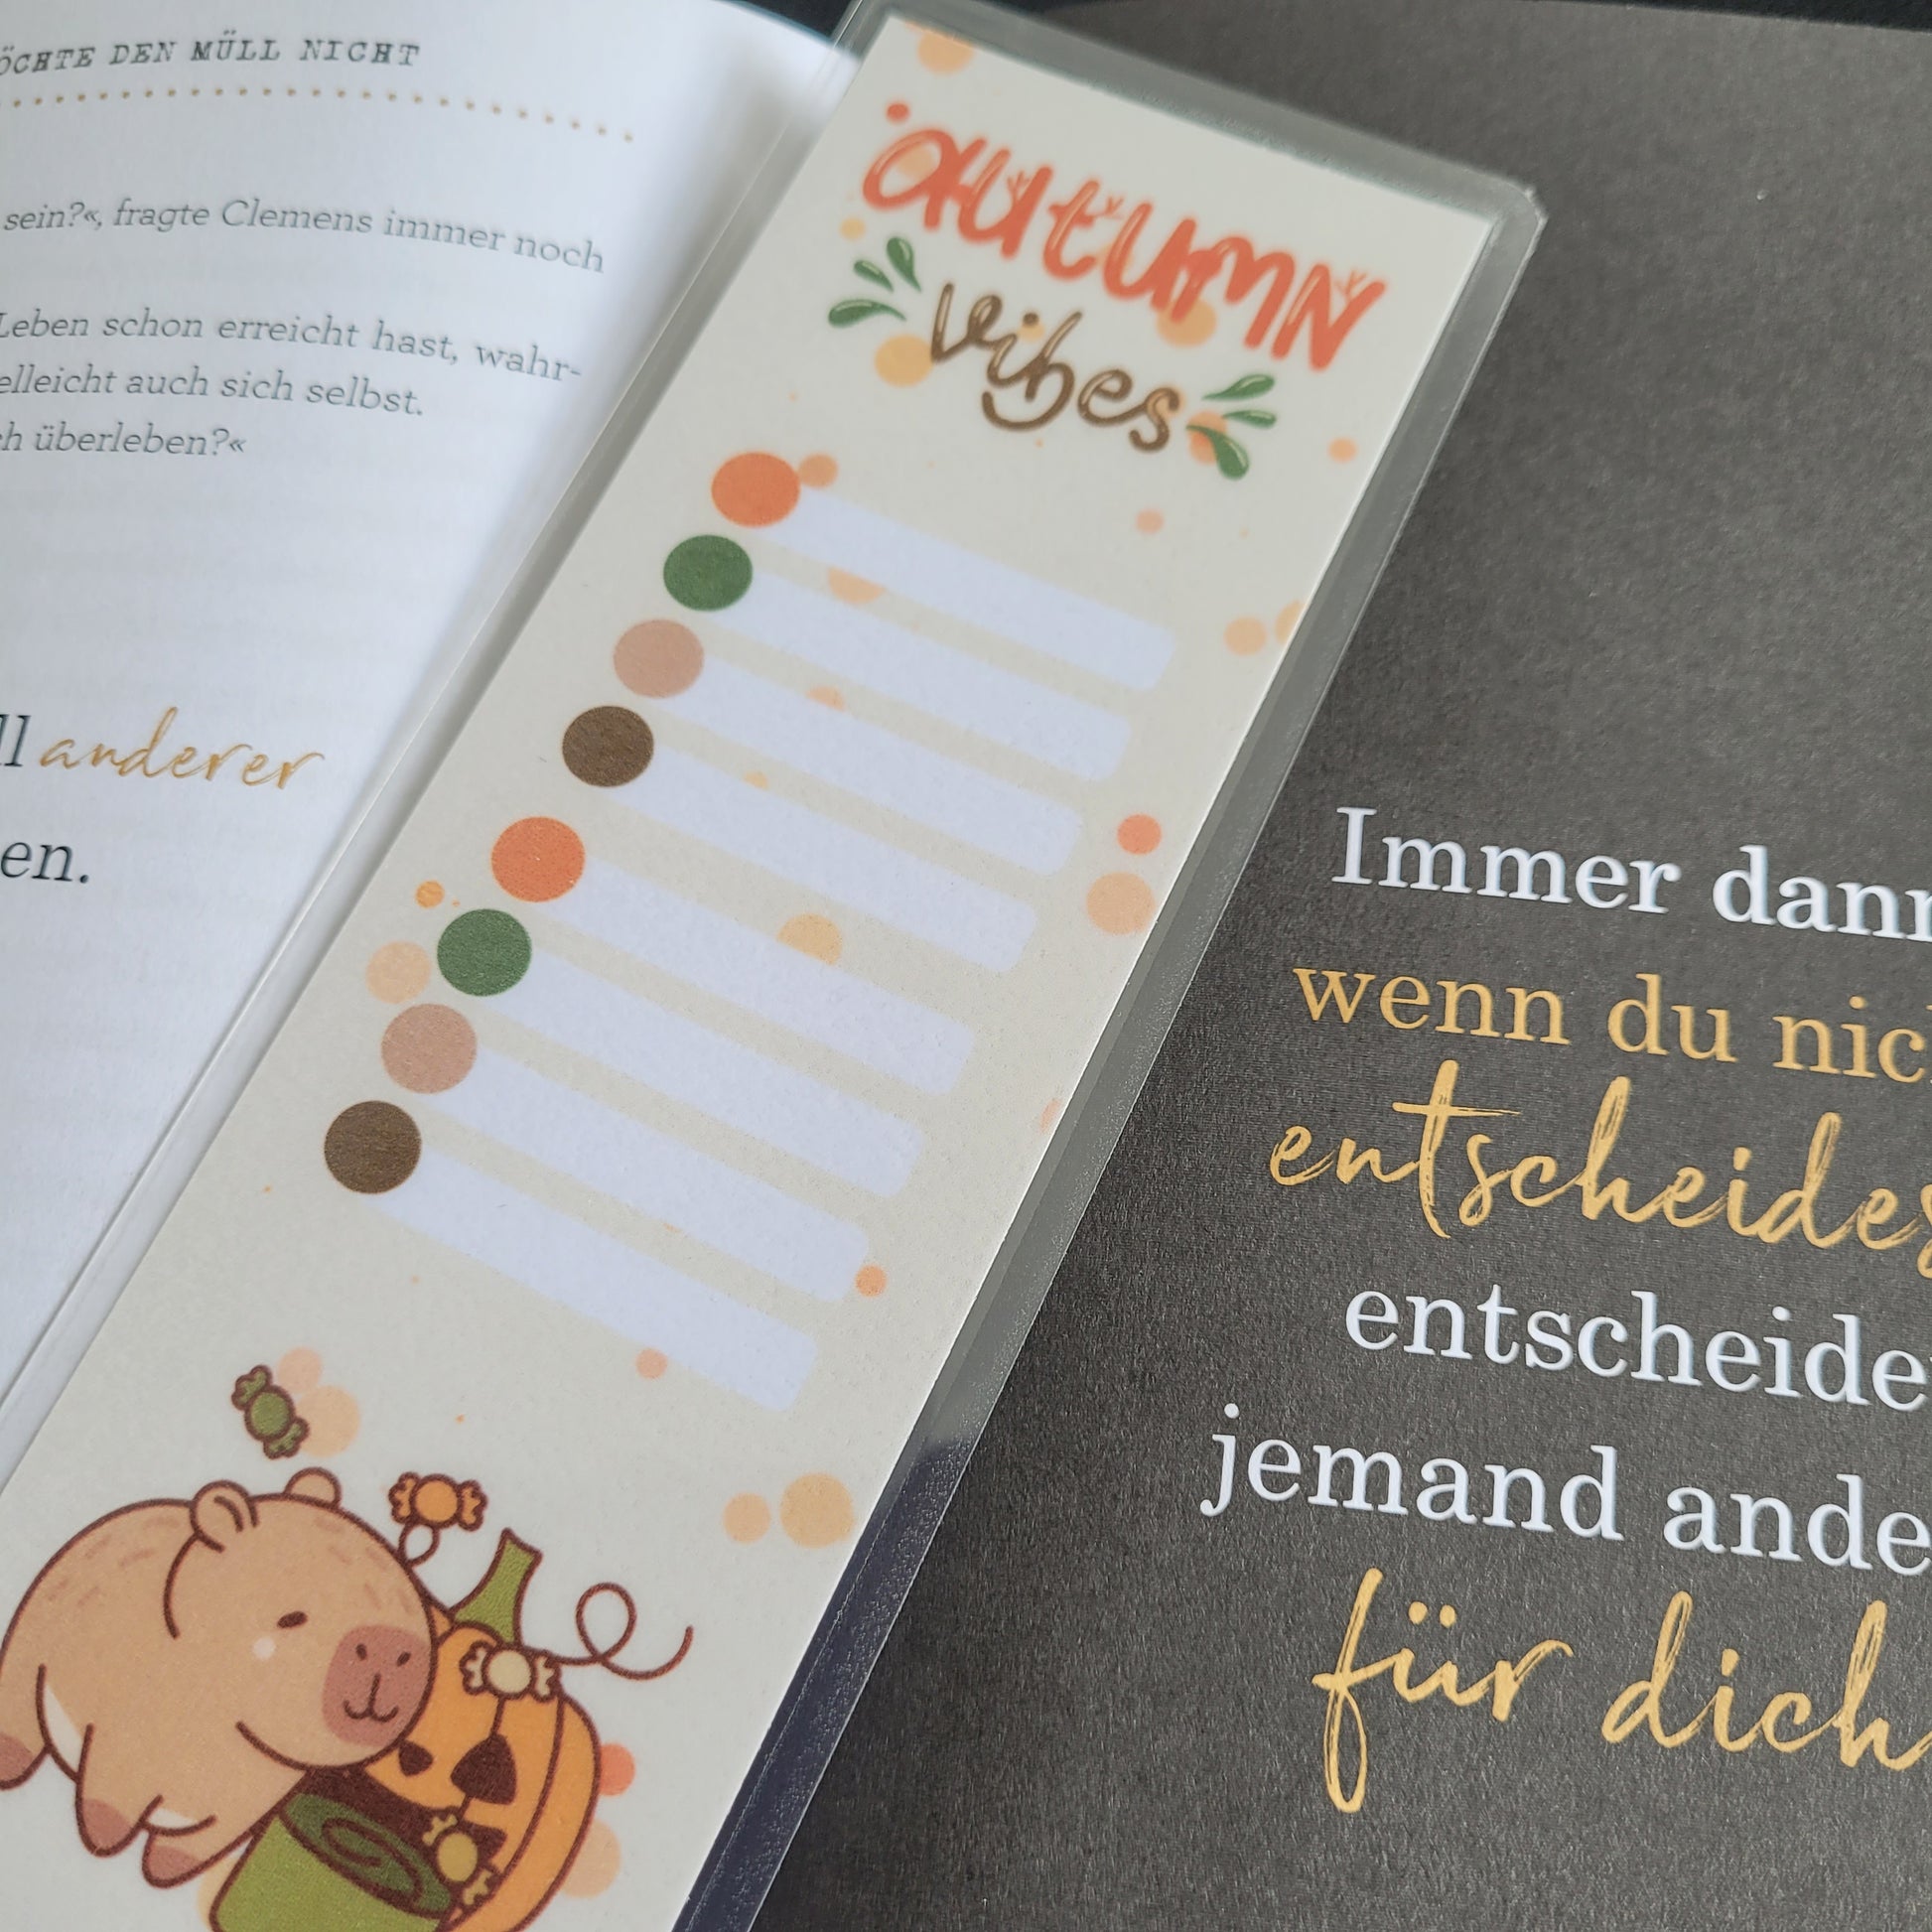 ÖCHTE DEN MÜLL NICHT
sein?«, fragte Clemens immer noch
Leben schon erreicht hast, wahr-
elleicht auch sich selbst.
ch überleben?«
ll anderer
en.
autumn
vibes
Immer dann
wenn du nic
entscheides
entscheide
jemand ande
für dich